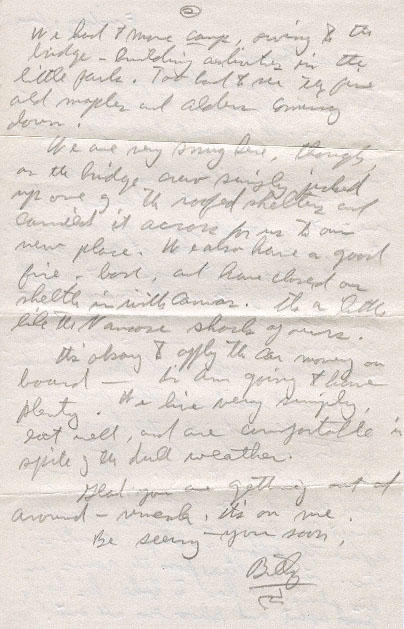 ②
We had to move camp, owing to the
bridge-building activities in the
little park. Too bad to see the fine
old maples and alders coming
down.
We are very snug here, though,
as the bridge crew simply picked
up one of the roofed shelters and
carried it across for us to our
new place. We also have a good
fire-, and have closed our
shelter in with canvas. It's a little
like the shack of yours.
It's okay to apply the car money on
board — I am going to have
plenty. We live very simply,
eat well, and are comfortable in
spite of the dull weather.
Glad you are getting out
around - it's on me.
Be seeing you soon,
Billy